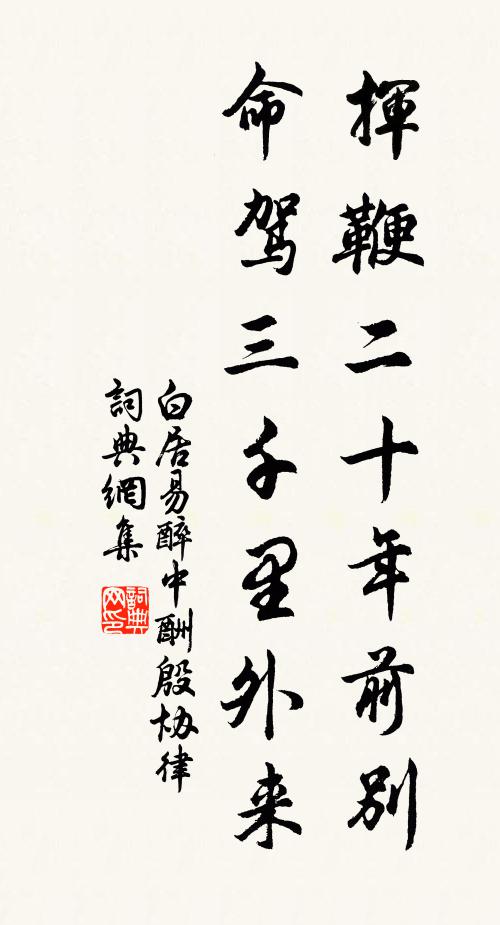 揮鞭二十年前別
命駕三千里外来
白居易醉中酬殷协律
詞典網集
詞典网印